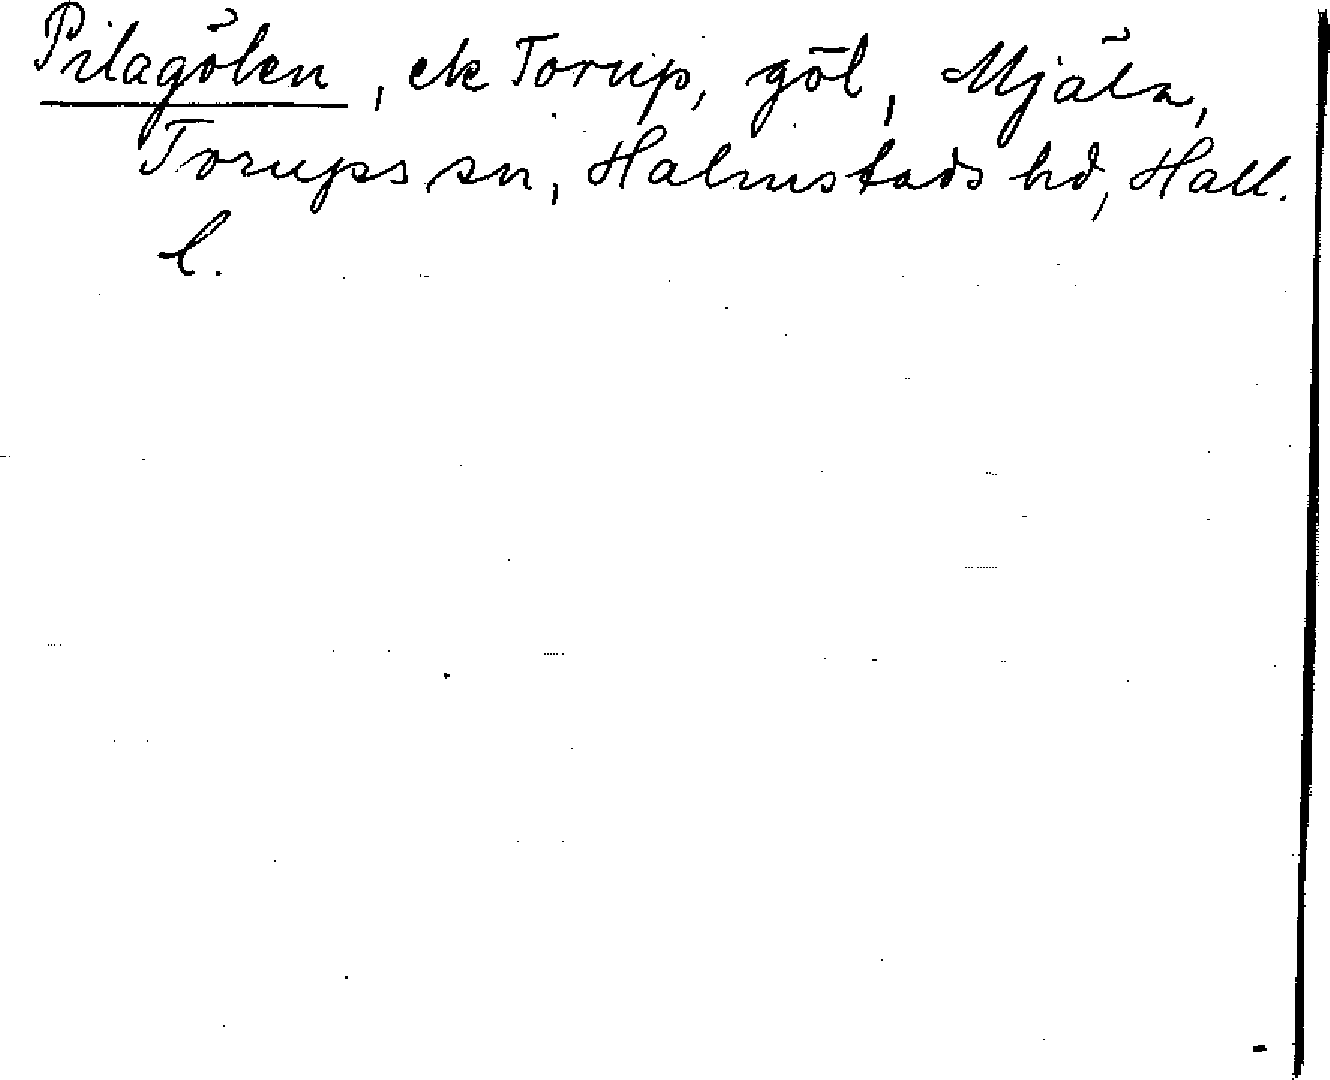 Pilagölen, ek Torup, göl, Mjäla,
Torups sn, Halmstads hd, Hall.
l.